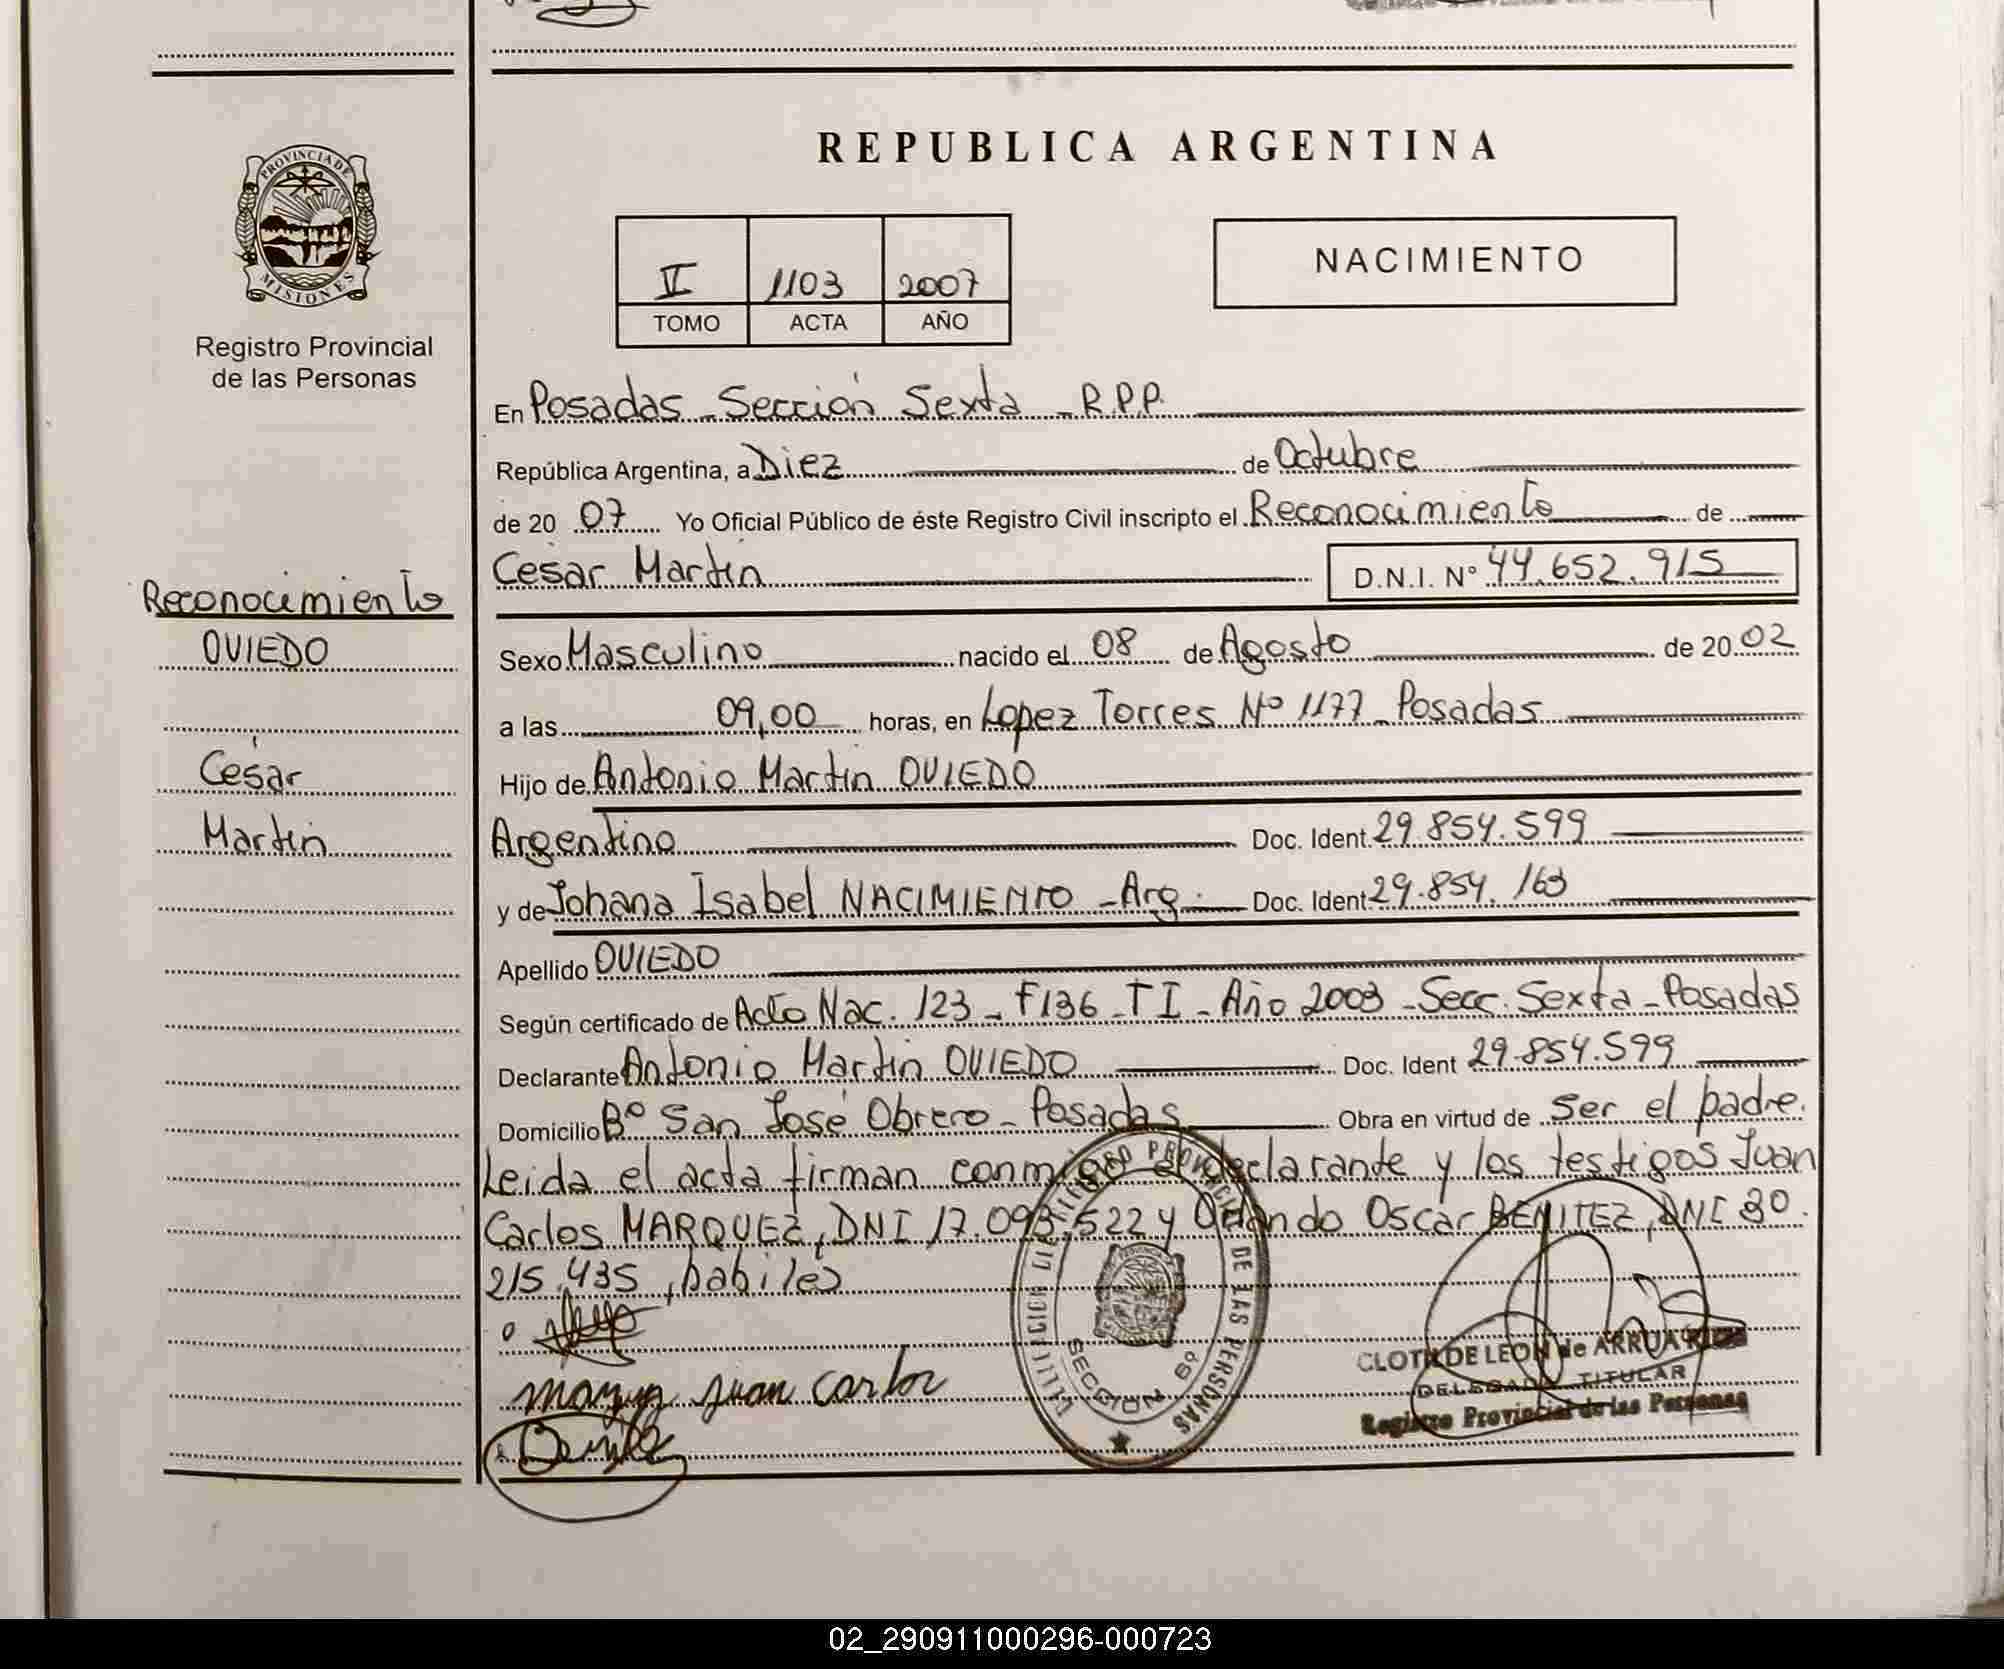 PROVINCIA DE
MISIONES
Registro Provincial
de las Personas
REPUBLICA ARGENTINA
II 1103 2007
TOMO ACTA AÑO
NACIMIENTO
En Posadas - Sección Sexta - R.P.P.
República Argentina, a Diez de Octubre
de 20 07 Yo Oficial Público de éste Registro Civil inscripto el Reconocimiento de
César Martín D.N.I. N° 44.652.915
Reconocimiento
OVIEDO
César
Martín
Sexo Masculino nacido el 08 de Agosto de 20 02
a las 09,00 horas, en Lopez Torres Nº 1177 - Posadas
Hijo de Antonio Martin OVIEDO
Argentino Doc. Ident. 29.854.599
y de Johana Isabel NACIMIENTO - Arg. Doc. Ident 29.854.163
Apellido OVIEDO
Según certificado de Acta Nac. 123 - F 136 - T I - Año 2003 - Secc. Sexta - Posadas
Declarante Antonio Martin OVIEDO Doc. Ident 29.854.599
Domicilio Bº San José Obrero - Posadas Obra en virtud de ser el padre.
Leida el acta firman conmigo el declarante y los testigos Juan
Carlos MARQUEZ, DNI 17.093.522 y Orlando Oscar BENITEZ, DNI 30.
215.435, habiles
Juan Carlos
REGISTRO PROVINCIAL DE LAS PERSONAS
SECCION 6º
CLOTILDE LEON de ARRUA
DELEGADA TITULAR
Registro Provincial de las Personas
02_290911000296-000723